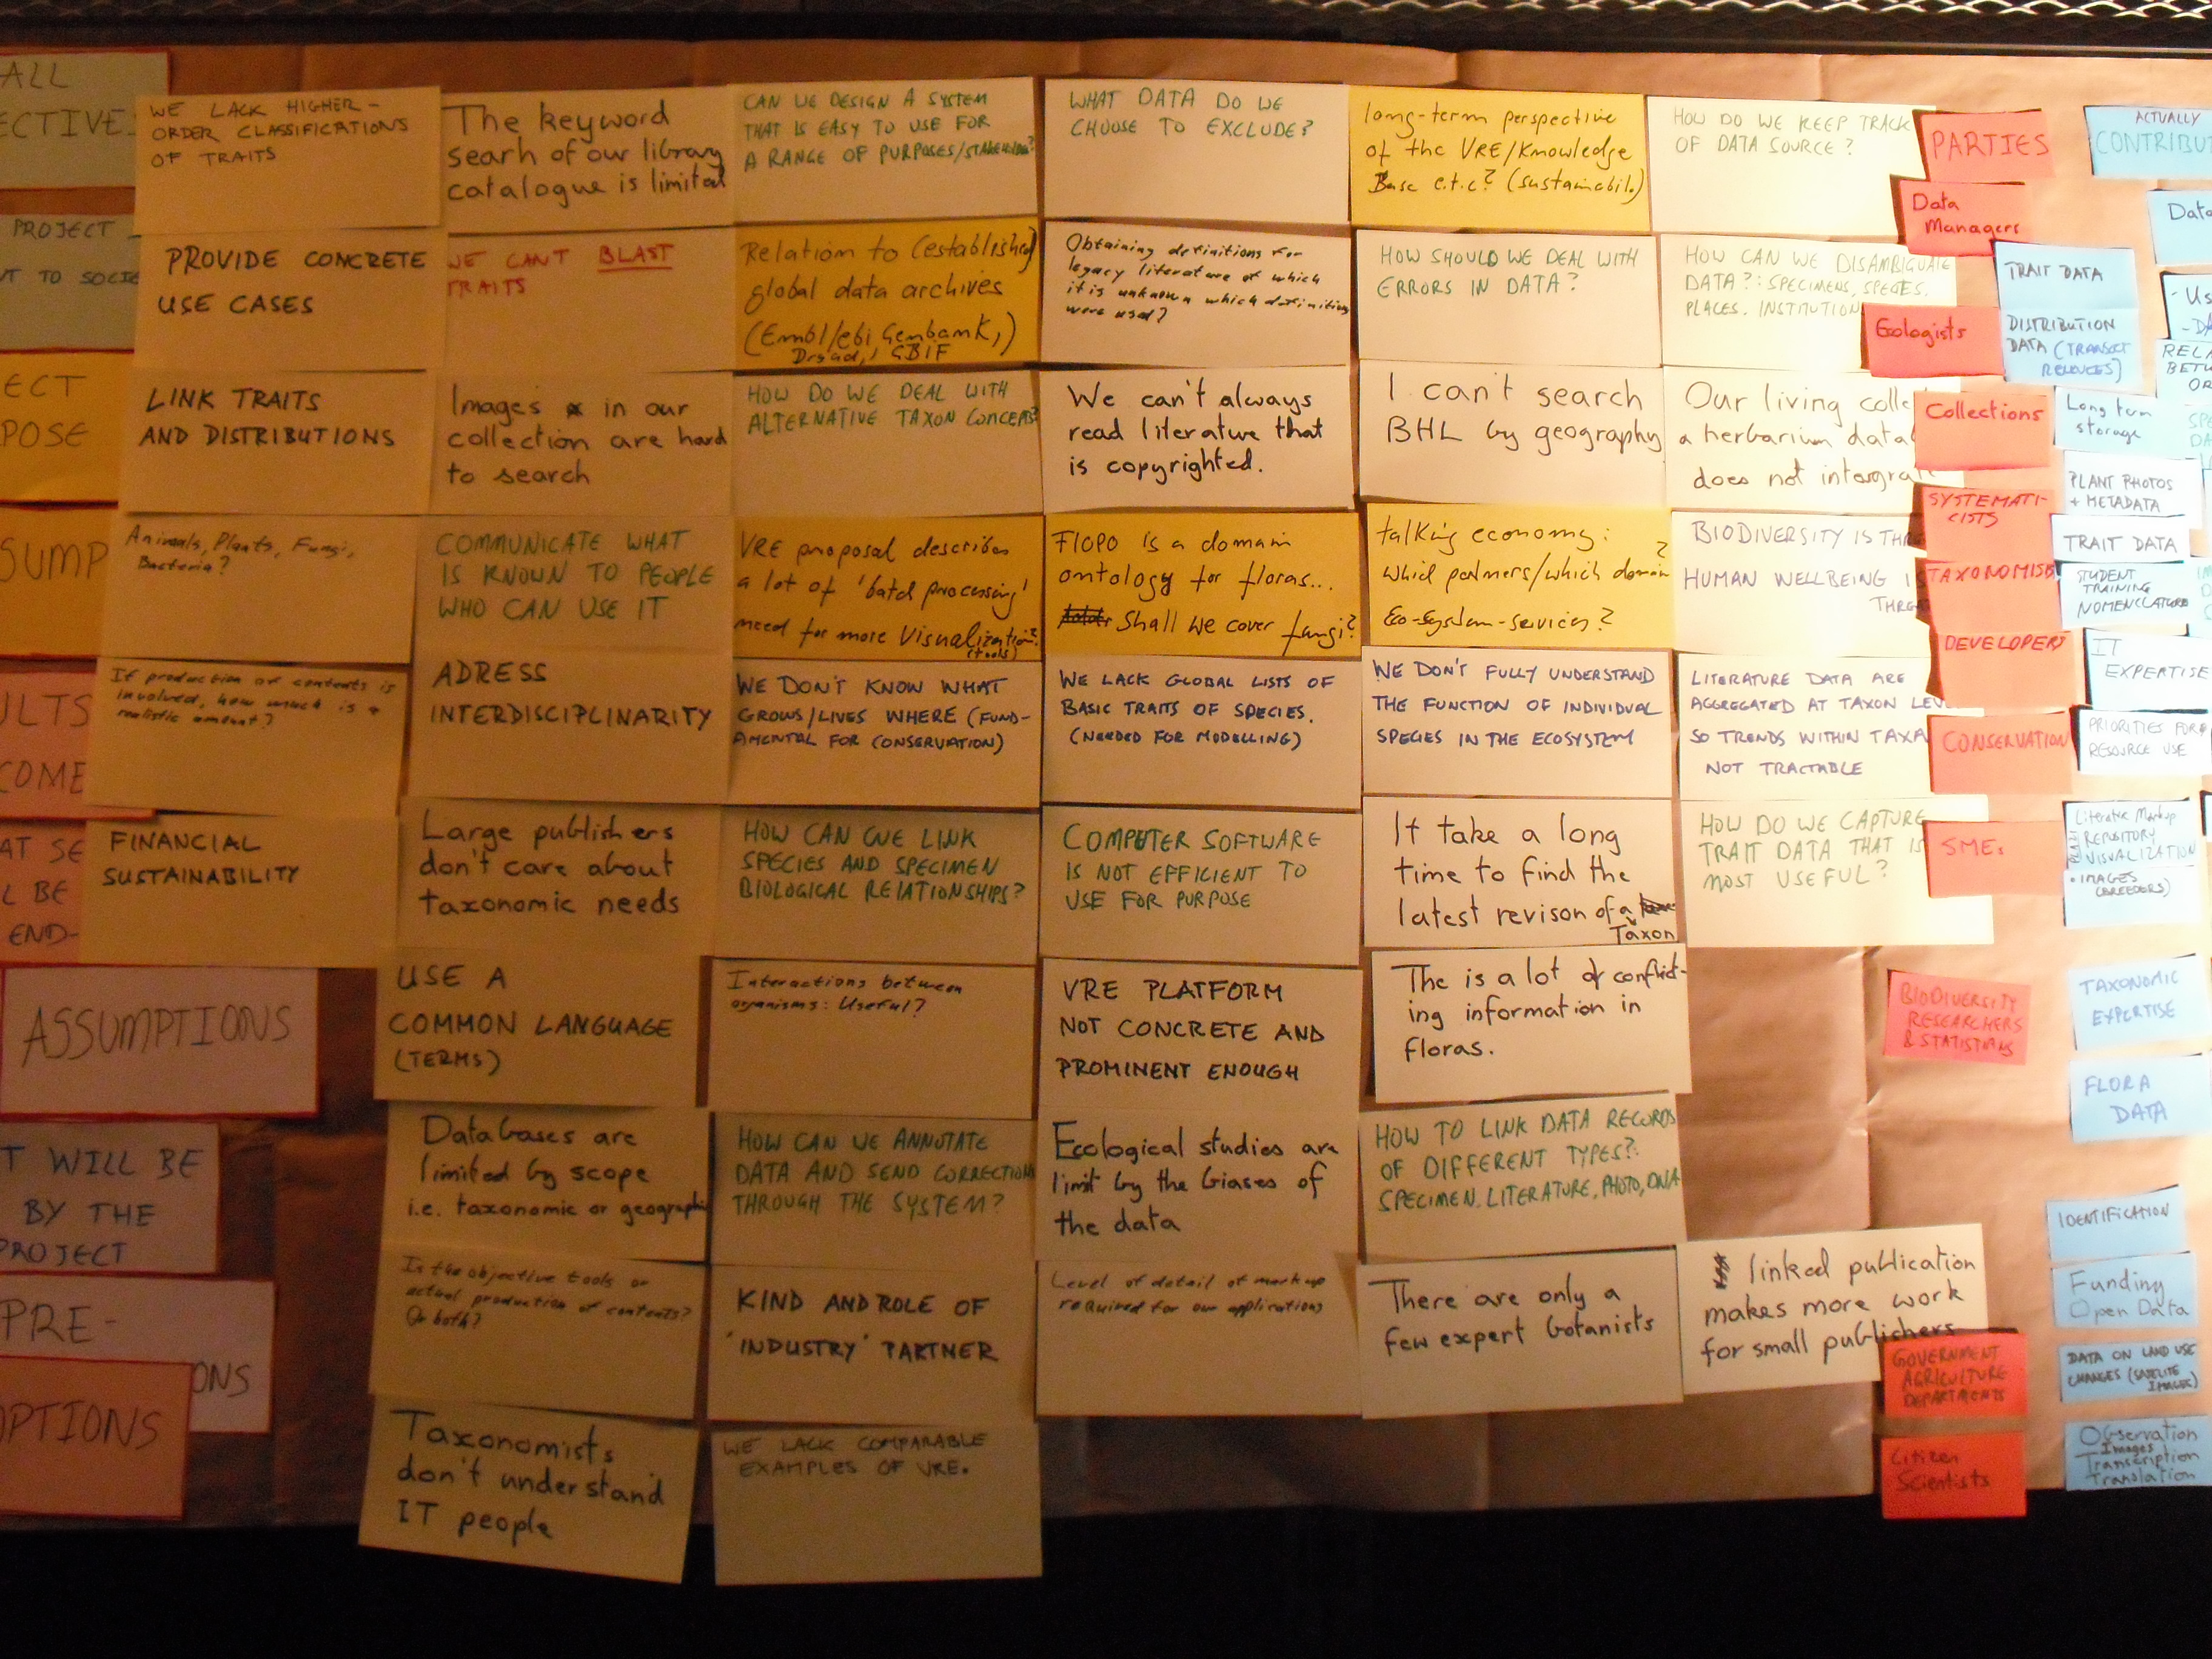 ALL
ECTIVE
PROJECT
UT TO SOCIE
ECT
POSE
SUMP
ULTS
COME
AT SE
L BE
END-
ASSUMPTIONS
T WILL BE
BY THE
PROJECT
PRE-
ONS
OPTIONS
WE LACK HIGHER-
ORDER CLASSIFICATIONS
OF TRAITS
PROVIDE CONCRETE
USE CASES
LINK TRAITS
AND DISTRIBUTIONS
Animals, Plants, Fungi,
Bacteria?
If production of contents is
involved, how much is a
realistic amount?
FINANCIAL
SUSTAINABILITY
The keyword
searh of our library
catalogue is limited
WE CAN'T BLAST
TRAITS
Images in our
collection are hard
to search
COMMUNICATE WHAT
IS KNOWN TO PEOPLE
WHO CAN USE IT
ADRESS
INTERDISCIPLINARITY
Large publishers
don't care about
taxonomic needs
USE A
COMMON LANGUAGE
(TERMS)
Databases are
limited by scope
i.e. taxonomic or geographic
Is the objective tools or
actual production of contents?
Or both?
Taxonomists
don't understand
IT people
CAN WE DESIGN A SYSTEM
THAT IS EASY TO USE FOR
A RANGE OF PURPOSES/
Relation to (established)
global data archives
(Embl/ebi, Genbank,)
Dryad, GBIF
HOW DO WE DEAL WITH
ALTERNATIVE TAXON CONCEPTS?
VRE proposal describes
a lot of 'batch processing'
need for more Visualization?
(tools)
WE DON'T KNOW WHAT
GROWS/LIVES WHERE (FUND-
AMENTAL FOR CONSERVATION)
HOW CAN WE LINK
SPECIES AND SPECIMEN
BIOLOGICAL RELATIONSHIPS?
Interactions between
organisms: Useful?
HOW CAN WE ANNOTATE
DATA AND SEND CORRECTIONS
THROUGH THE SYSTEM?
KIND AND ROLE OF
'INDUSTRY' PARTNER
WE LACK COMPARABLE
EXAMPLES OF VRE.
WHAT DATA DO WE
CHOOSE TO EXCLUDE?
Obtaining definitions for
legacy literature of which
it is unknown which definitions
were used?
We can't always
read literature that
is copyrighted.
FlOPO is a domain
ontology for floras...
Shall we cover fungi?
WE LACK GLOBAL LISTS OF
BASIC TRAITS OF SPECIES.
(NEEDED FOR MODELLING)
COMPUTER SOFTWARE
IS NOT EFFICIENT TO
USE FOR PURPOSE
VRE PLATFORM
NOT CONCRETE AND
PROMINENT ENOUGH
Ecological studies are
limit by the biases of
the data
Level of detail of markup
required for our applications
long-term perspective
of the VRE/Knowledge
Base e.t.c? (sustainabil.)
HOW SHOULD WE DEAL WITH
ERRORS IN DATA?
I can't search
BHL by geography
talking economy:
which partners/which domain?
Eco-System-services?
WE DON'T FULLY UNDERSTAND
THE FUNCTION OF INDIVIDUAL
SPECIES IN THE ECOSYSTEM
It take a long
time to find the
latest revison of a
Taxon
The is a lot of conflict-
ing information in
floras.
HOW TO LINK DATA RECORDS
OF DIFFERENT TYPES?:
SPECIMEN, LITERATURE, PHOTO, DNA
There are only a
few expert botanists
HOW DO WE KEEP TRACK
OF DATA SOURCE?
HOW CAN WE DISAMBIGUATE
DATA?: SPECIMENS, SPECIES,
PLACES, INSTITUTION
Our living colle
a herbarium data
does not intergrat
BIODIVERSITY IS THRE
HUMAN WELLBEING IS
THREA
LITERATURE DATA ARE
AGGREGATED AT TAXON LEV
SO TRENDS WITHIN TAXA
NOT TRACTABLE
HOW DO WE CAPTURE
TRAIT DATA THAT IS
MOST USEFUL?
linked publication
makes more work
for small publichers
PARTIES
Data
Managers
Ecologists
Collections
SYSTEMATI-
CISTS
TAXONOMISTS
DEVELOPERS
CONSERVATION
SMEs
BIODIVERSITY
RESEARCHERS
& STATISTIANS
GOVERNMENT
AGRICULTURE
DEPARTMENTS
Citizen
Scientists
ACTUALLY
CONTRIBUT
Data
TRAIT DATA
DISTRIBUTION
DATA (TRANSECT
RELEVEES)
Long term
storage
PLANT PHOTOS
+ METADATA
TRAIT DATA
STUDENT
TRAINING
NOMENCLATURE
IT
EXPERTISE
PRIORITIES FOR
RESOURCE USE
Literature Markup
REPOSITORY
VISUALIZATION
• IMAGES
(BREEDERS)
TAXONOMIC
EXPERTISE
FLORA
DATA
IDENTIFICATION
Funding
Open Data
DATA ON LAND USE
CHANGES (SATELITE
IMAGES)
Observation
Images
Transcription
Translation